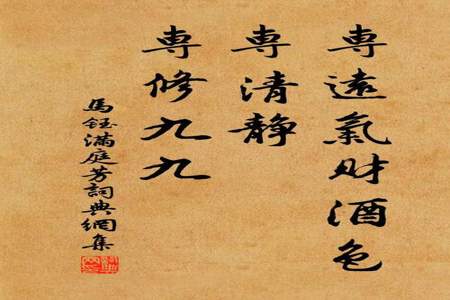 専遠氣財酒色
専清靜
専修九九
馬鈺滿庭芳詞典網集